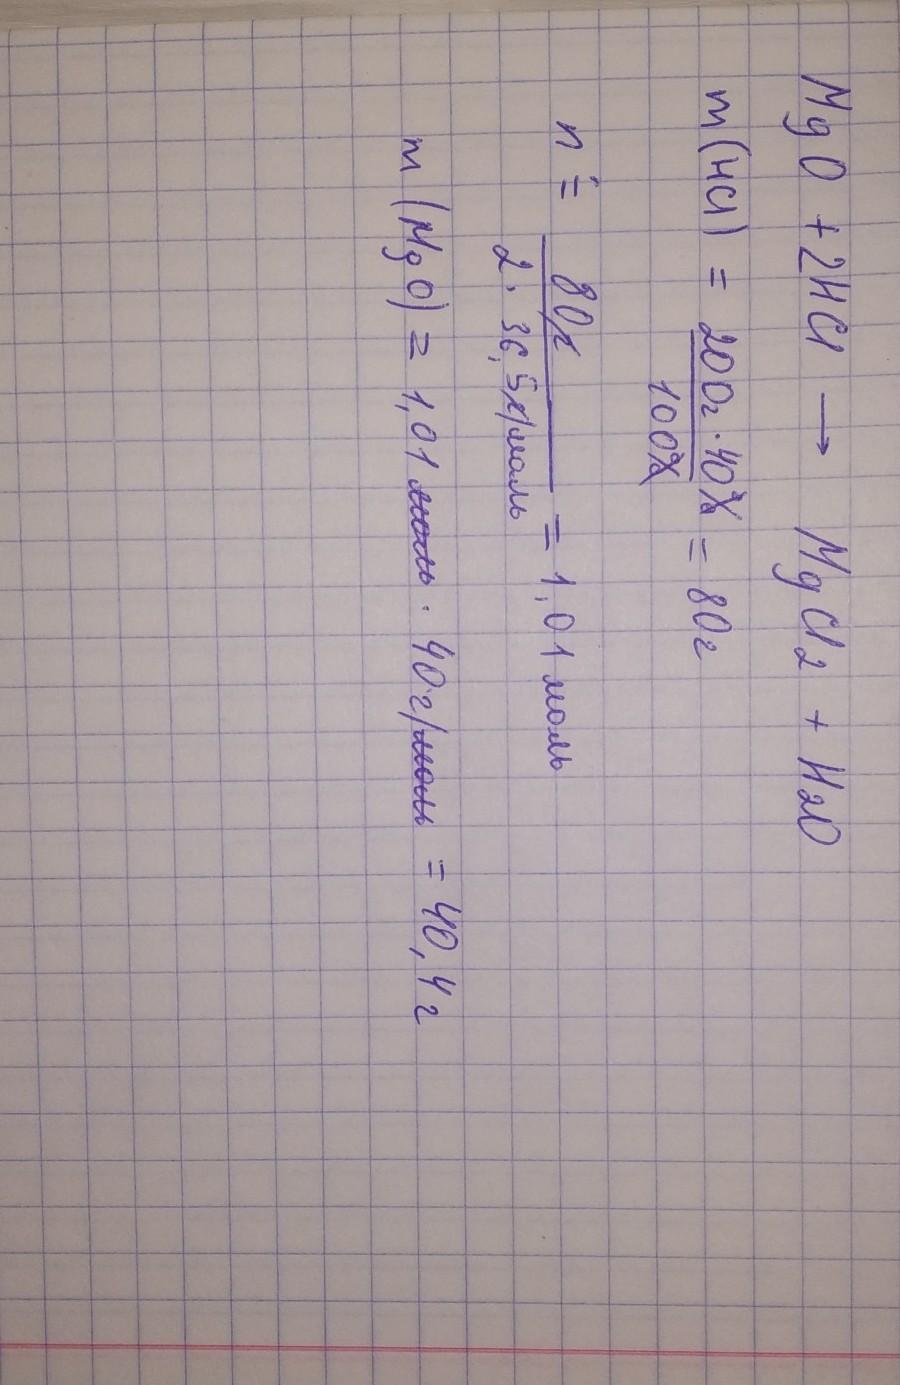 MgO + 2HCl → MgCl2 + H2O
m(HCl) = 200г · 40% / 100% = 80г
n = 80г / 2 · 36,5г/моль = 1,01 моль
m(MgO) = 1,01 моль · 40г/моль = 40,4г